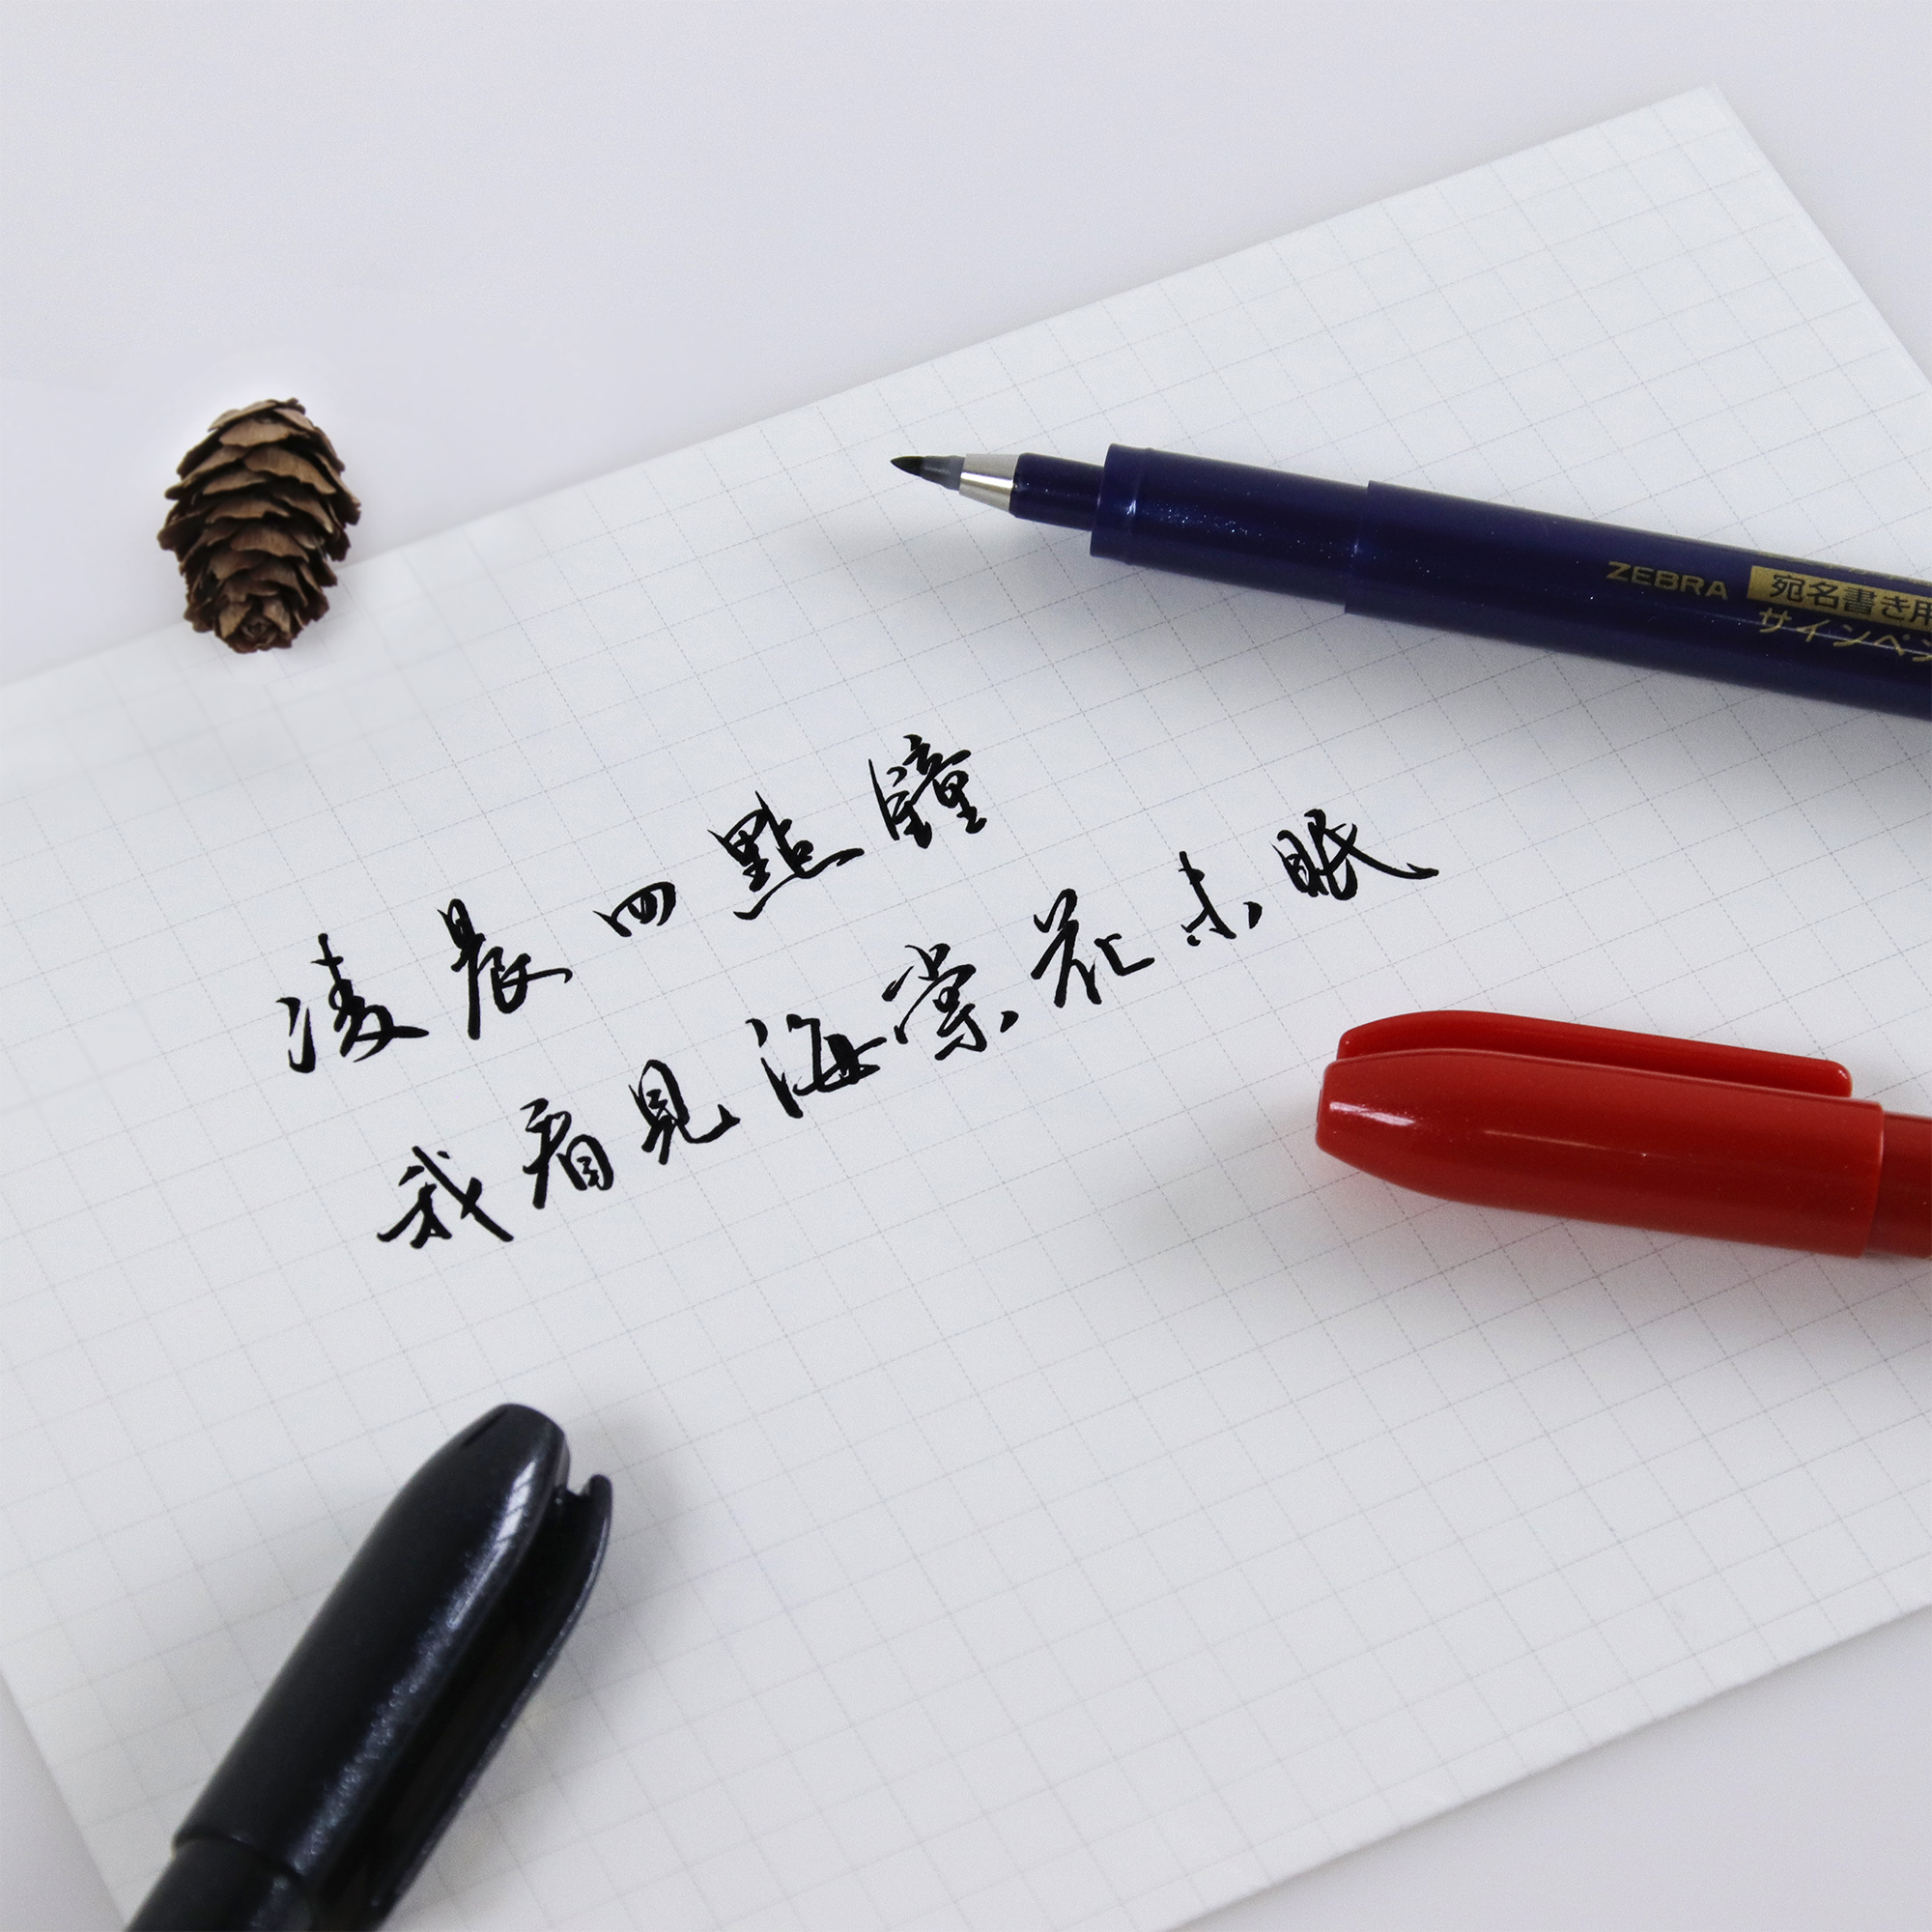 ZEBRA 宛名書き用
サインペン
凌晨四點鐘
我看見海棠花未眠